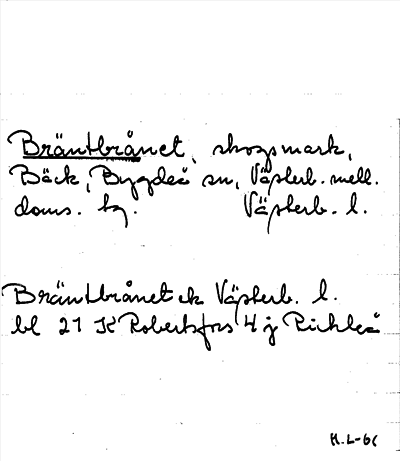 Bräntbrånet, skogsmark,
Bäck, Bygdeå sn, Västerb. mell.
doms. hg. Västerb. l.
Bräntbrånet ek Västerb. l.
bl 21 K Robertsfors 4 j Rickleå
H.L-66